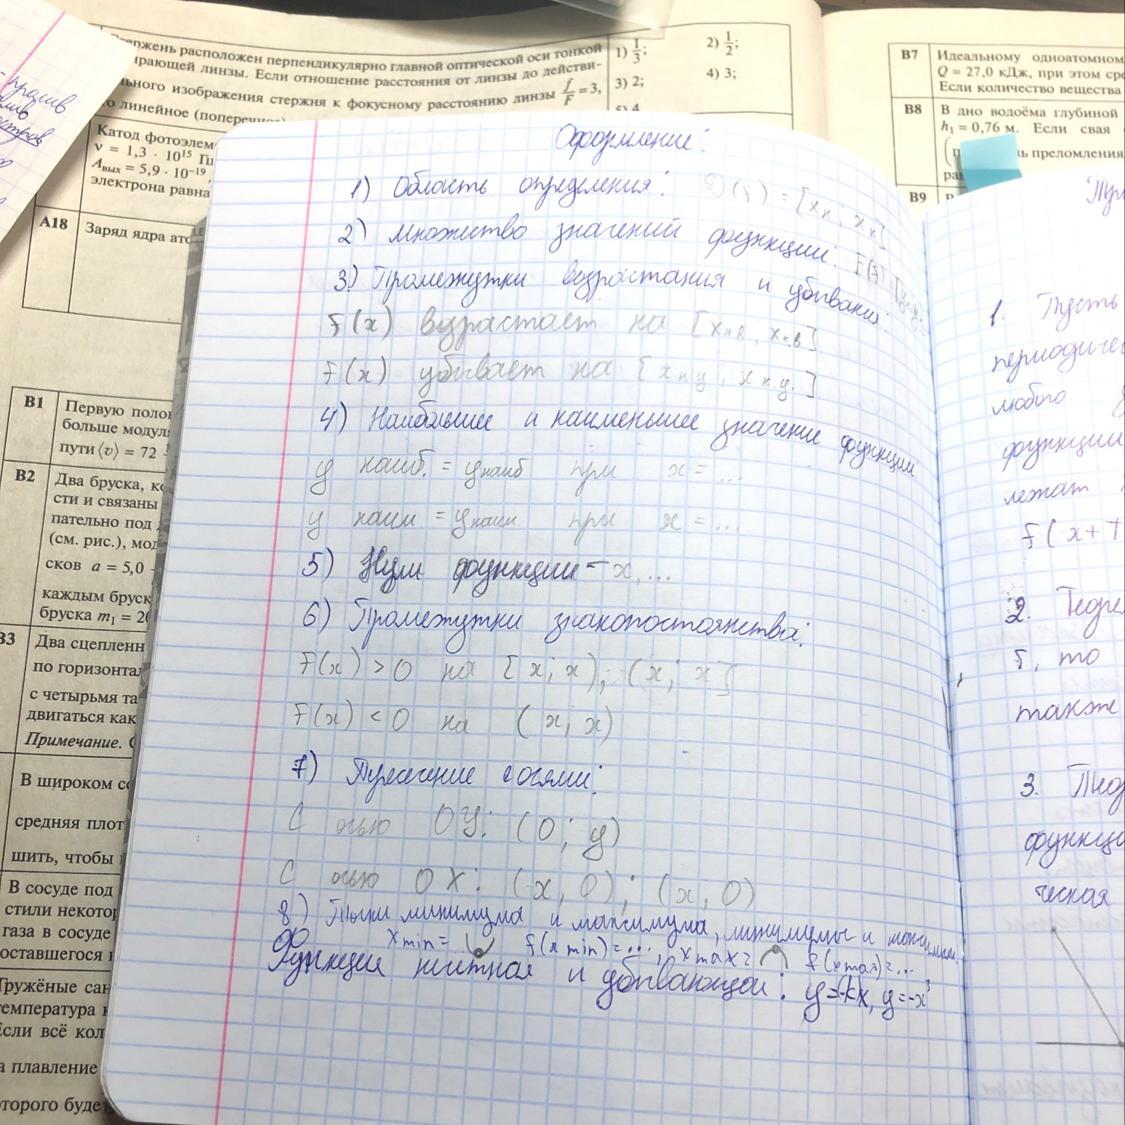 стержень расположен перпендикулярно главной оптической оси тонкой
собирающей линзы. Если отношение расстояния от линзы до действи-
льного изображения стержня к фокусному расстоянию линзы f/F = 3,
о линейное (попереч
1) 1/3;
2) 1/2;
3) 2;
4) 3;
Катод фотоэлем
ν = 1,3 · 10¹⁵ Г
Aвых = 5,9 · 10⁻¹⁹
электрона равна
A18
Заряд ядра ато
B1
Первую поло
больше модул
пути ⟨v⟩ = 72
B2
Два бруска, к
сти и связаны
пательно под
(см. рис.), мод
сков a = 5,0
каждым бруск
бруска m₁ = 20
B3
Два сцепленн
по горизонтал
с четырьмя та
двигаться как
Примечание. С
В широком со
средняя плот
шить, чтобы
В сосуде под
стили некотор
газа в сосуде
оставшегося
Гружёные сан
температура
Если всё кол
а плавление
оторого буде
B7
Идеальному одноатомном
Q = 27,0 кДж, при этом сре
Если количество вещества
B8
В дно водоёма глубиной
h₁ = 0,76 м. Если свая
ь преломления
B9
Оформление:
1) Область определения: D(f) = [xн; xк]
2) множество значений функции:
3) Промежутки возрастания и убывания:
f(x) возрастает на [xн.в, xк.в]
f(x) убывает на [xн.у; xк.у.]
4) Наибольшее и наименьшее значение функции
y наиб. = yнаиб при x = ...
y наим = yнаим при x = ...
5) Нули функции - x, ...
6) Промежутки знакопостоянства:
f(x) > 0 на [x; x); (x; x]
f(x) < 0 на (x; x)
7) Пересечение с осями:
С осью OY: (0; y)
С осью OX: (x, 0); (x, 0)
8) Точки минимума и максимума, минимумы и максимумы
x min = f(x min) = ..., x max = f(x max) = ...
Функция нечетная и убывающая: y = -kx, y = -x³
1. Пусть
периодичес
любого
функции
лежат
f(x+T
2. Теоре
f, то
также
3.
функци
ческая